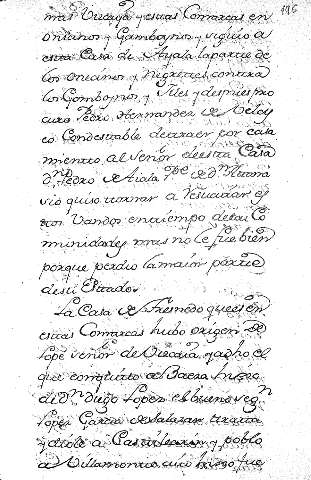 196
mas Vizcaya y estas Comarcas en
oniainos y Gamboynos, y siguio a
esta Casa de Ayala la parte de
los oniainos, y Negretes contra
los Gomboynos y Giles y despues pro
curo Pedro Hernandez de Velas
co Condestable de traer por casa
miento al Señor de esta Casa
Dn Pedro de Aiala Pe de Dn Atana
sio quiso tornar a resucitar es
tos Vandos en tiempo de las Co
munidades mas no le fue bien
porque perdio la maior parte
de su Estado.
La Casa de Fresnedo que es en
estas Comarcas hubo origen de
Lope señor de Vizcaia, y a dho el
que conquisto de Baeza hijo
de Dn Diego Lopez el bueno segn
Lopez Garcia de Salazar
y diole a y poblo
a Villamonte cuio hijo fue